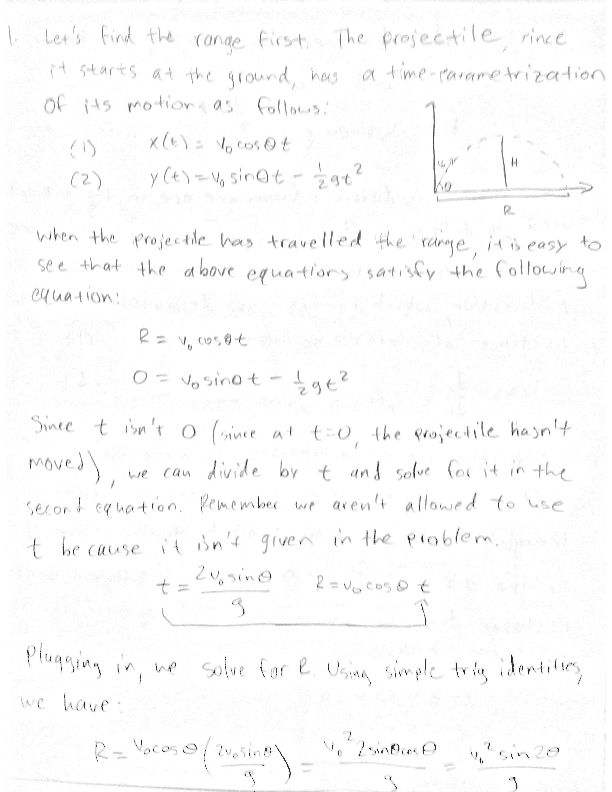 1. Let's find the range first. The projectile, since
it starts at the ground, has a time-parametrization
of its motion as follows:
(1) x(t) = v₀ cosθt
(2) y(t) = v₀ sinθt - ½gt²
v₀ θ H
R
when the projectile has travelled the range, it is easy to
see that the above equations satisfy the following
equation:
R = v₀ cosθt
0 = v₀ sinθt - ½gt²
Since t isn't 0 (since at t=0, the projectile hasn't
moved), we can divide by t and solve for it in the
second equation. Remember we aren't allowed to use
t because it isn't given in the problem.
t = 2v₀ sinθ / g R = v₀ cosθ t
Plugging in, we solve for R. Using simple trig identities,
we have:
R = v₀ cosθ (2v₀ sinθ / g) = v₀² 2 sinθ cosθ / g = v₀² sin2θ / g